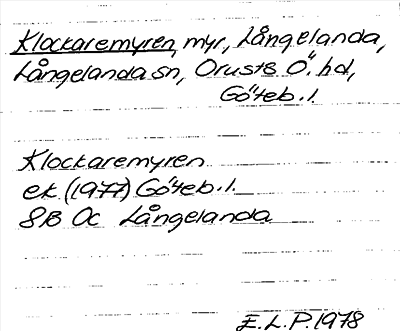 Klockaremyren, myr, Långelanda,
Långelanda sn, Orusts Ö. hd,
Göteb. l.
Klockaremyren
ek (1977) Göteb. l.
8B 0c Långelanda
E.L.P. 1978